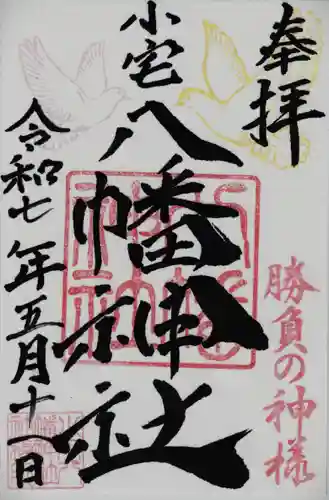 奉拝
勝負の神様
小宅
八幡神社
令和七年五月十八日